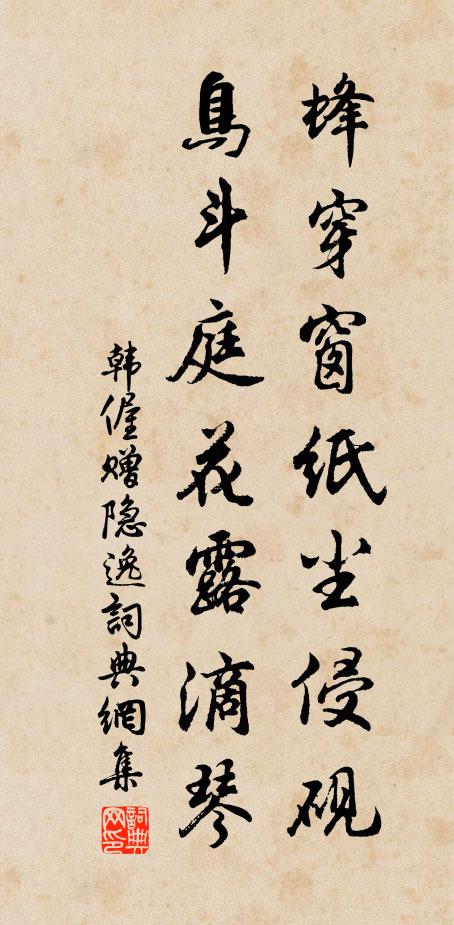 蜂穿窗纸尘侵砚
鸟斗庭花露滴琴
韩偓赠隐逸词典網集
詞典网印